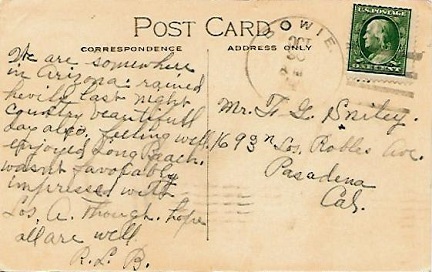 POST CARD
CORRESPONDENCE
ADDRESS ONLY
BOWIE
OCT
U.S. POSTAGE
ONE CENT
We are somewhere
in Arizona. rained
hevily last night
Country beautifull
day also. feeling well.
enjoyed Long Beach.
wasnt favorably
impressed with
Los. A. though. hope
all are well
R. L. B.
Mr. F. G.
1693 n Los Robles Ave.
Pasadena
Cal.